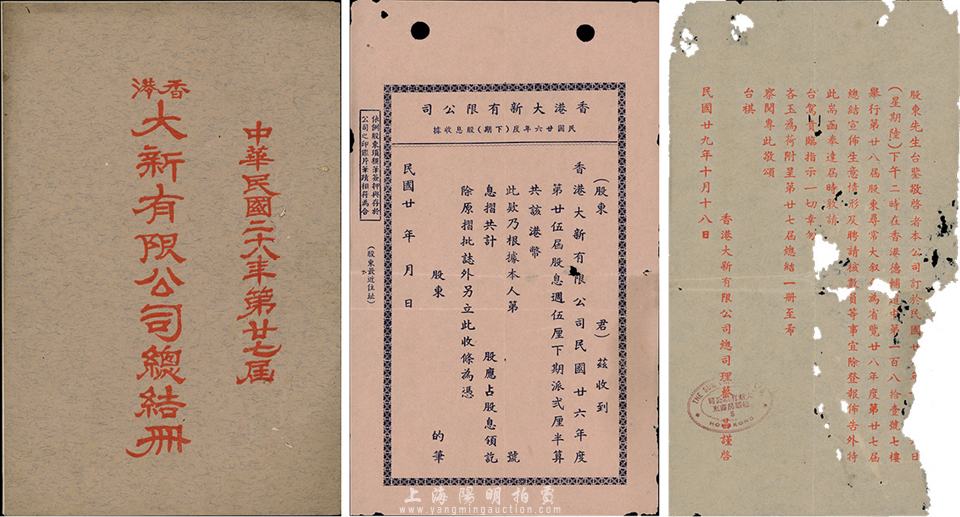 中華民國二十八年第廿七屆
香港
大新有限公司總結冊
香港大新有限公司
民國廿六年度(下期)股息收據
依例股東項親筆簽押與存於
公司之印鑑片筆蹟相符為合
香港大新有限公司民國廿六年度
第廿伍屆股息週伍厘下期派弍厘半算
共該港幣
此欵乃根據本人第 號
息摺共計 股應占股息領訖
除原摺批誌外另立此收條為憑
(股東 君)茲收到
股東 的筆
民國廿 年 月 日
(股東最近住址)
股東先生台鑒敬啓者本公司訂於民國廿 日
(星期陸)下午二時在香港德輔道中第一百八拾壹號七樓
舉行第廿八屆股東尋常大叙 為省覽廿八年度第廿七屆
總結宣佈生意情形及聘請核數員等事宜除登報佈告外特
此耑函奉達屆時敦請
台駕賁臨指示一切幸勿
吝玉為荷附呈第廿七屆總結一冊至希
察閱專此敬頌
台祺
香港大新有限公司總司理蔡 謹啓
民國廿九年十月十八日
THE SUN
HONGKONG
上海陽明拍賣
www.yangmingauction.com